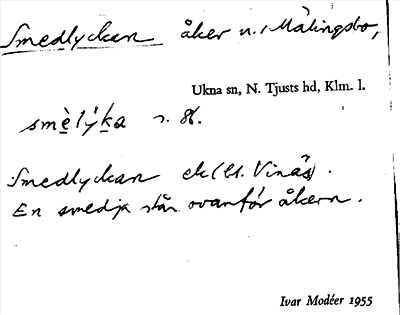 Smedlyckan åker u. Målingsbo,
Ukna sn, N. Tjusts hd, Klm. l.
smèlýka s. 86.
Smedlyckan ek (u. Vinäs).
En smedja står ovanför åkern.
Ivar Modéer 1955